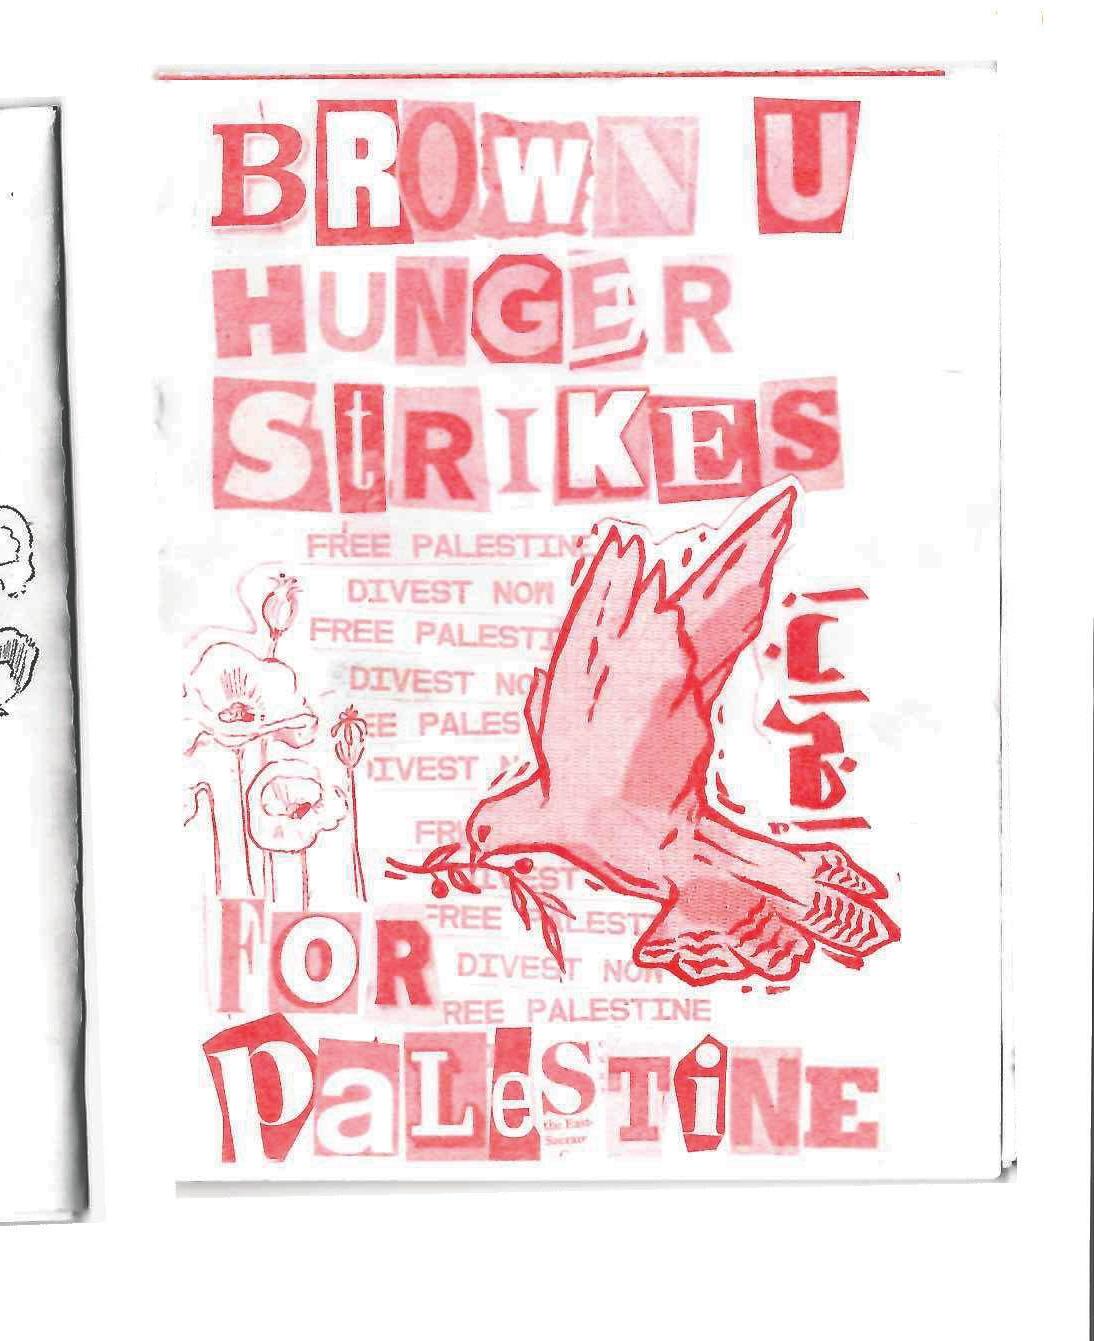 BROWN U
HUNGER
StRIKES
FREE PALESTINE
DIVEST NOW
FREE PALESTI
DIVEST NO
EE PALES
DIVEST N
FR
IVEST
FREE PALEST
DIVEST NOW
REE PALESTINE
FOR
PaLeSTiNE
the East-